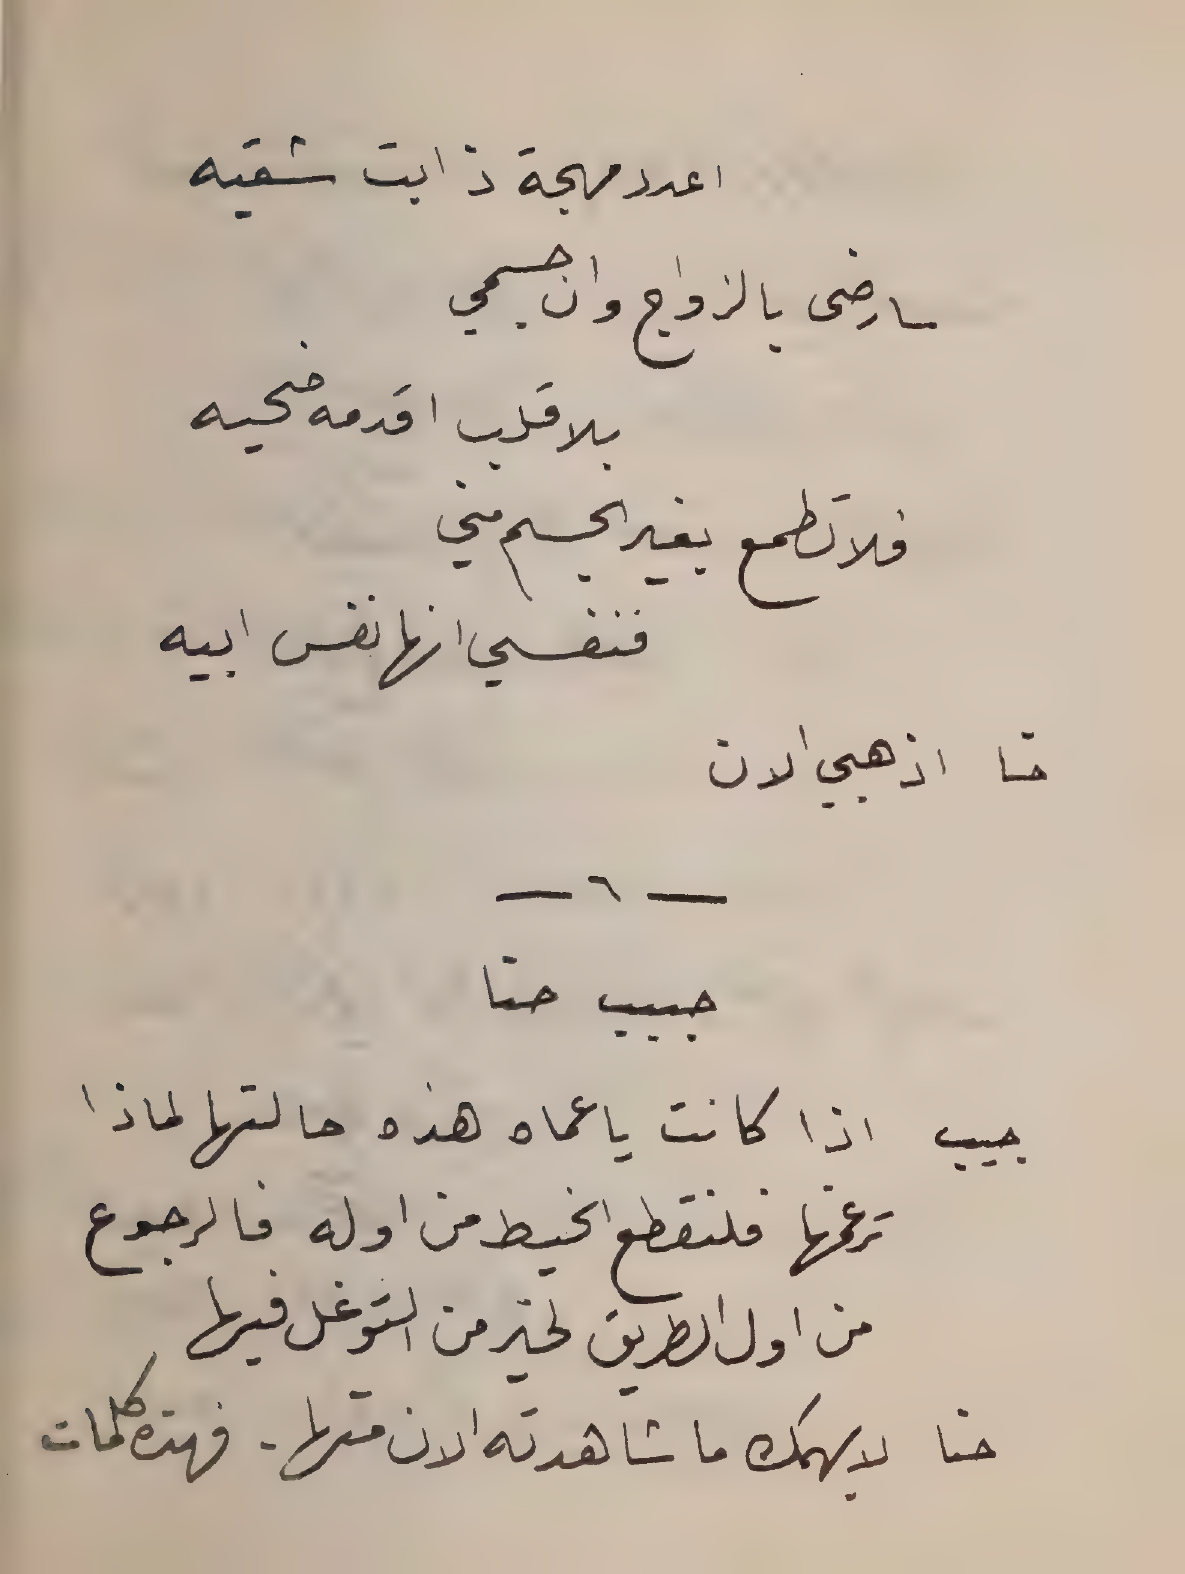 اعدد مهجة ذابت شقيه
سارضى بالزواج وان جسمي
بلا قلب اقدمه ضحيه
فلا تطمع بغير الجسم مني
فنفسي انها نفس ابيه
حنا اذهبي الان
— ٦ —
حبيب حنا
حبيب اذا كانت يا عماه هذه حالتها لماذا
ترغمها فلنقطع الخيط من اوله فالرجوع
من اول الطريق لخير من التوغل فيها
حنا لا يهمك ما شاهدته الان منها - فهذه كلمات